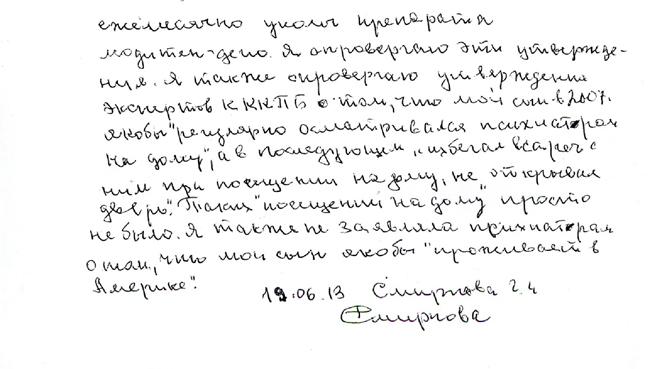 ежемесячно уколы препарата
модитен-депо. Я опровергаю эти утвержде-
ния. Я также опровергаю утверждения
экспертов ККПБ о том, что мой сын в 2007г.
якобы "регулярно осматривался психиатром
на дому", а в последующем "избегал встреч с
ним при посещении на дому, не открывал
дверь". Таких "посещений на дому" просто
не было. Я также не заявляла психиатрам
о том, что мой сын якобы "проживает в
Америке".
19.06.13 Смирнова
Смирнова